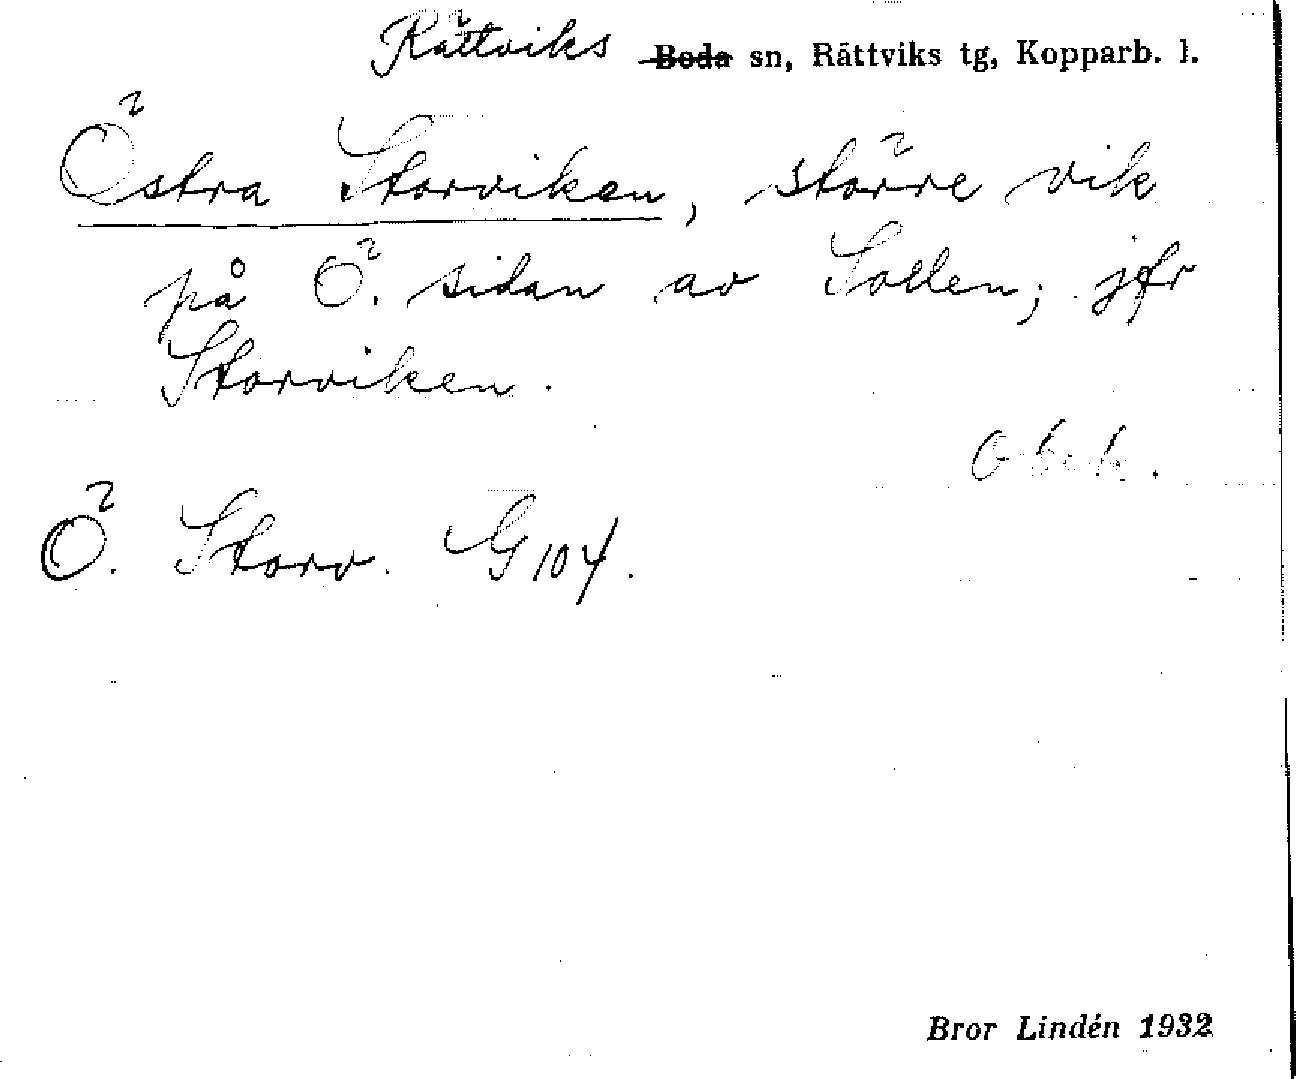 Rättviks Boda sn, Rättviks tg, Kopparb. l.
Östra Storviken, större vik
på Ö. sidan av Sollen; jfr
Storviken.
Obek.
Ö. Storv. G 104.
Bror Lindén 1932